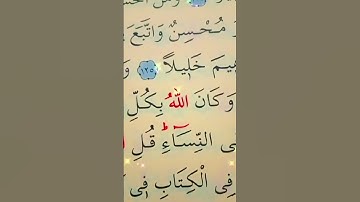 مُحْسِنٌ وَاتَّبَعَ
خَلِيلًا ١٢٥
وَكَانَ اللّٰهُ بِكُلِّ
النِّسَاءِ قُلِ
فِي الْكِتَابِ فِي